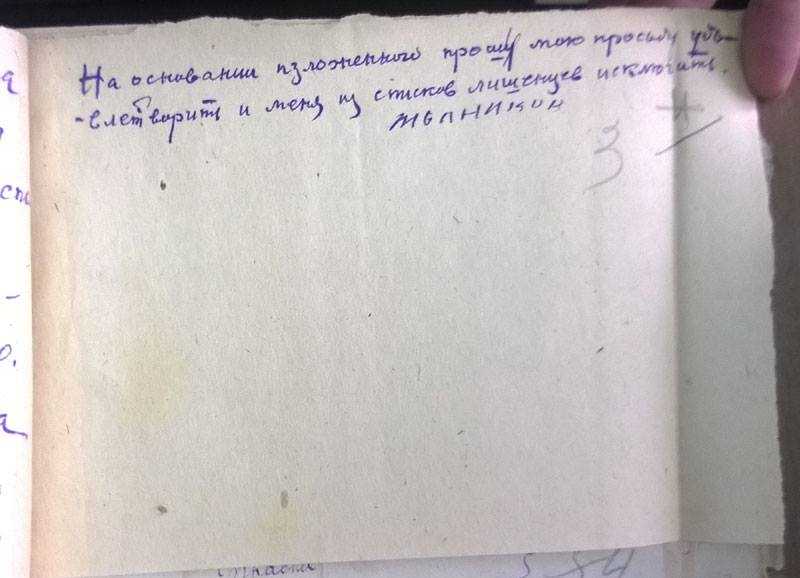 На основании изложенного прошу мою просьбу удо-
-влетворить и меня из списков лишенцев исключить.
Мельников
3